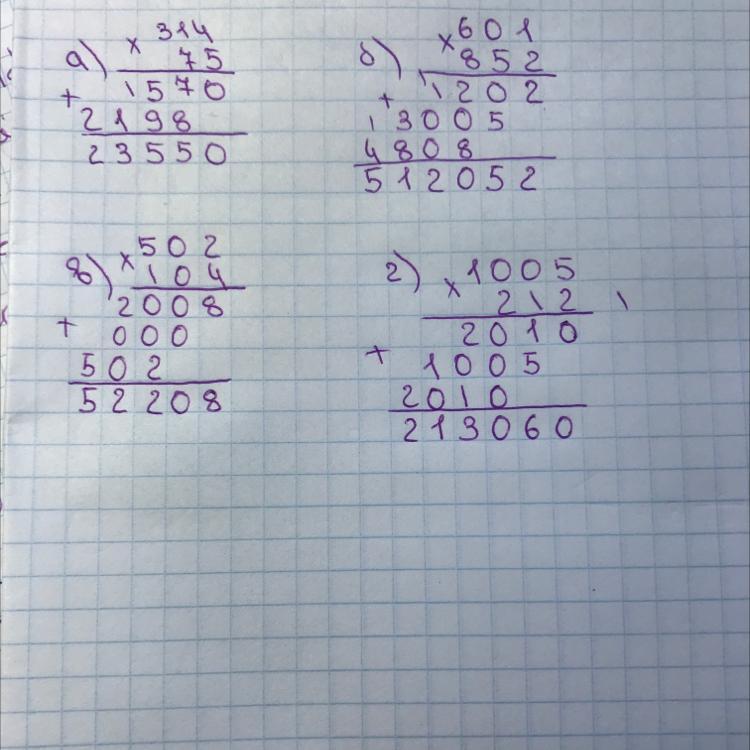 а) × 314
75
+ 1570
2198
23550
б) × 601
852
+ 1202
3005
4808
512052
в) × 502
104
+ 2008
000
502
52208
г) × 1005
212
+ 2010
1005
2010
213060